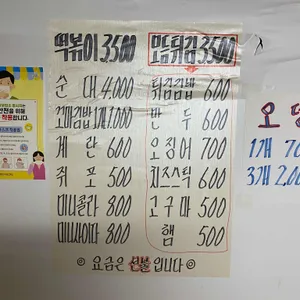 떡볶이 3,500
순대 4,000
꼬마김밥 1개 1,000
계란 600
쥐포 500
미니콜라 800
미니사이다 800
모듬튀김 3,500
튀김김밥 600
만두 600
오징어 700
치즈스틱 600
고구마 500
햄 500
◎ 요금은 선불입니다 ◎
오뎅
1개 70
3개 2,00